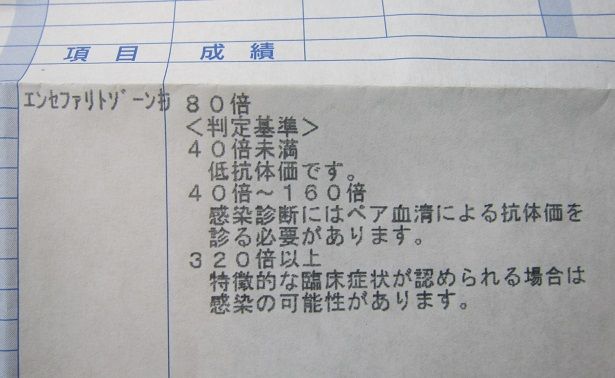 項目 成績
エンセファリトゾーン抗 80倍
<判定基準>
40倍未満
低抗体価です。
40倍~160倍
感染診断にはペア血清による抗体価を
診る必要があります。
320倍以上
特徴的な臨床症状が認められる場合は
感染の可能性があります。